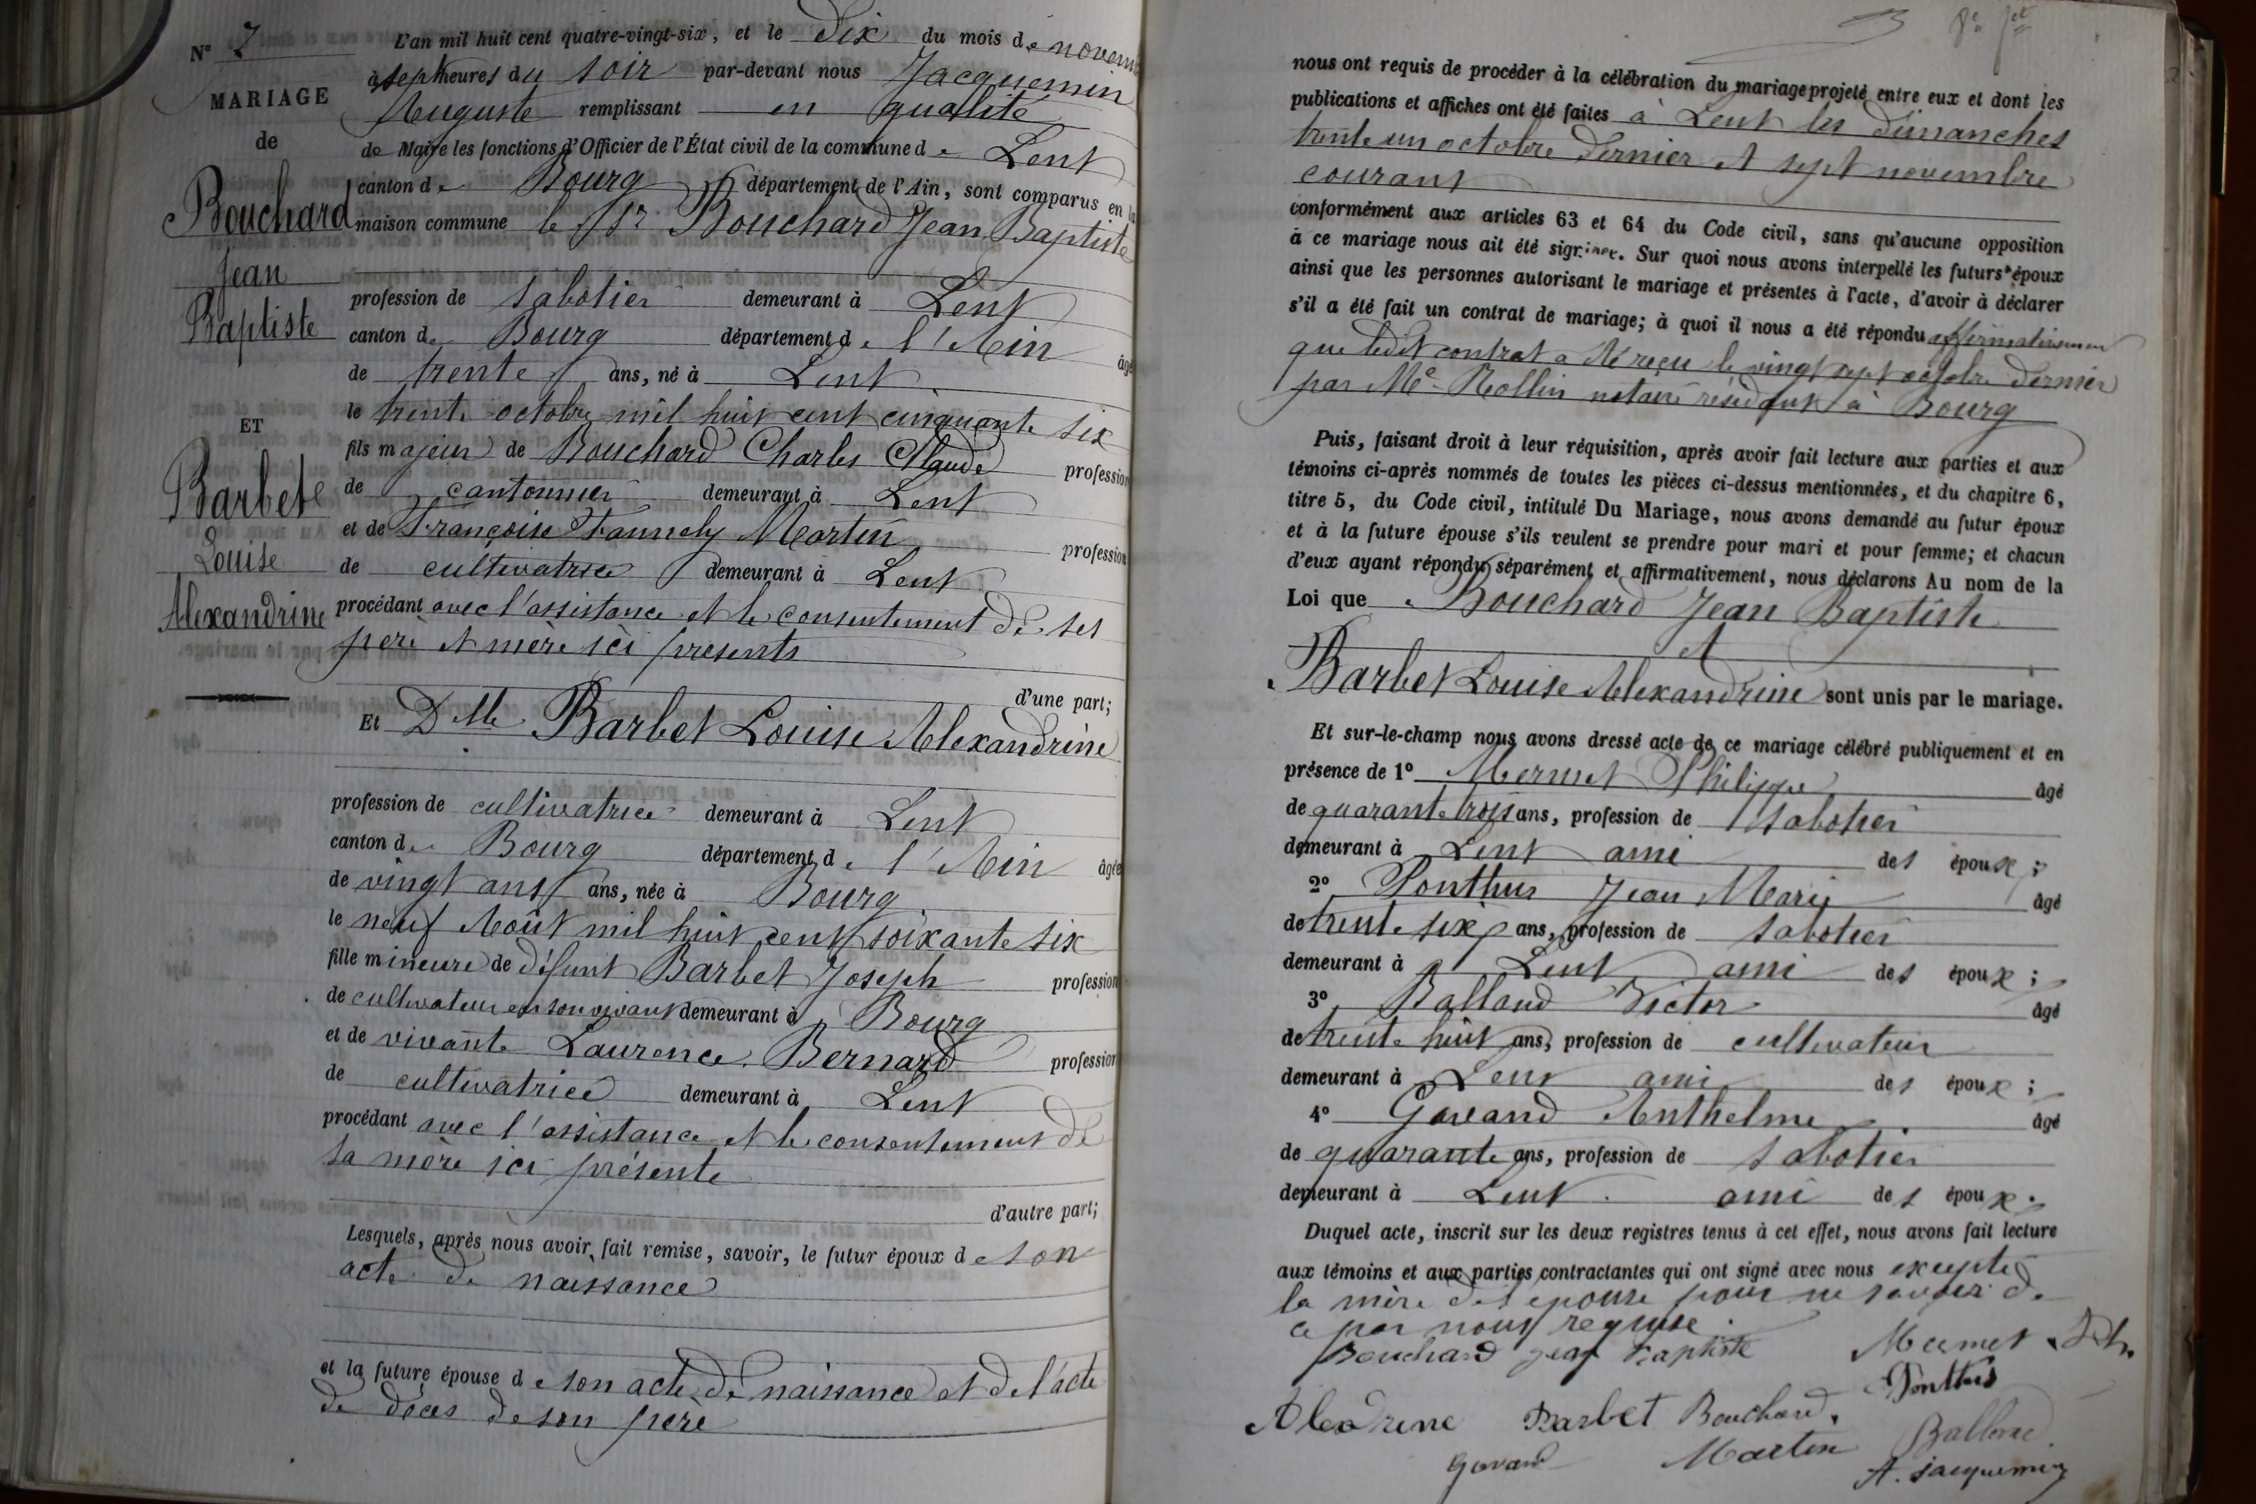 N° 7
MARIAGE
de
Bouchard
Jean
Baptiste
ET
Barbet
Louise
Alexandrine
L'an mil huit cent quatre-vingt-six, et le dix du mois de novem
à sept heures du soir par-devant nous Jacquemin
Auguste remplissant en qualité
de Maire les fonctions d'Officier de l'État civil de la commune de Lent
canton de Bourg département de l'Ain, sont comparus en la
maison commune le Sr Bouchard Jean Baptiste
profession de sabotier demeurant à Lent
canton de Bourg département de l'Ain âgé
de trente ans, né à Lent
le trente octobre mil huit cent cinquante six
fils majeur de Bouchard Charles Claude profession
de cantonnier demeurant à Lent
et de Françoise Fannely Martin profession
de cultivatrice demeurant à Lent
procédant avec l'assistance et le consentement de ses
père et mère ici présents
d'une part;
Et Dlle Barbet Louise Alexandrine
profession de cultivatrice demeurant à Lent
canton de Bourg département de l'Ain âgée
de vingt ans ans, née à Bourg
le neuf Août mil huit cent soixante six
fille mineure de défunt Barbet Joseph profession
de cultivateur en son vivant demeurant à Bourg
et de vivante Laurence Bernard profession
de cultivatrice demeurant à Lent
procédant avec l'assistance et le consentement de
sa mère ici présente
d'autre part;
Lesquels, après nous avoir fait remise, savoir, le futur époux de son
acte de naissance
et la future épouse de son acte de naissance et de l'acte
de décès de son père
nous ont requis de procéder à la célébration du mariage projeté entre eux et dont les
publications et affiches ont été faites à Lent les dimanches
trente un octobre dernier et sept novembre
courant
conformément aux articles 63 et 64 du Code civil, sans qu'aucune opposition
à ce mariage nous ait été signifiée. Sur quoi nous avons interpellé les futurs époux
ainsi que les personnes autorisant le mariage et présentes à l'acte, d'avoir à déclarer
s'il a été fait un contrat de mariage; à quoi il nous a été répondu affirmativement
que ledit contrat a été reçu le vingt sept octobre dernier
par Me Rollin notaire résidant à Bourg
Puis, faisant droit à leur réquisition, après avoir fait lecture aux parties et aux
témoins ci-après nommés de toutes les pièces ci-dessus mentionnées, et du chapitre 6,
titre 5, du Code civil, intitulé Du Mariage, nous avons demandé au futur époux
et à la future épouse s'ils veulent se prendre pour mari et pour femme; et chacun
d'eux ayant répondu séparément et affirmativement, nous déclarons Au nom de la
Loi que Bouchard Jean Baptiste
et
Barbet Louise Alexandrine sont unis par le mariage.
Et sur-le-champ nous avons dressé acte de ce mariage célébré publiquement et en
présence de 1° Mermet Philippe âgé
de quarante trois ans, profession de sabotier
demeurant à Lent ami des époux;
2° Ponthus Jean Marie âgé
de trente six ans, profession de sabotier
demeurant à Lent ami des époux;
3° Balland Victor âgé
de trente huit ans, profession de cultivateur
demeurant à Lent ami des époux;
4° Gavand Anthelme âgé
de quarante ans, profession de sabotier
demeurant à Lent ami des époux.
Duquel acte, inscrit sur les deux registres tenus à cet effet, nous avons fait lecture
aux témoins et aux parties contractantes qui ont signé avec nous excepté
la mère de l'épouse pour ne savoir de
ce par nous requise.
Bouchard jean baptiste Mermet Ph.
Ponthus
Alexdrine Barbet Bouchard
Balland
Gavand Martin
A. Jacquemin